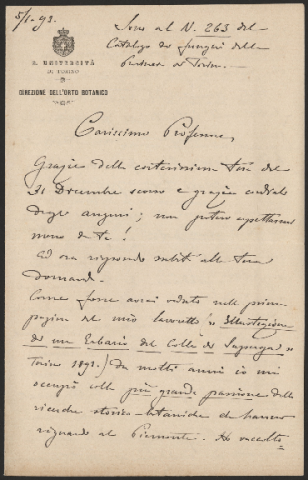 5/1-93.
Sono al N. 263 del
Catalogo dei funghi della
di Torino.
R. UNIVERSITÀ
DI TORINO
DIREZIONE DELL'ORTO BOTANICO
Carissimo Professore,
Grazie della cortesissima tua del
31 Dicembre scorso e grazie cordiali
degli auguri; non potevo aspettarmi
meno da te!
Ed ora rispondo subito alle tue
domande.
Come forse avrai veduto nelle prime
pagine del mio lavoretto "Illustrazione
di un Erbario del Colle di Superga"
Torino 1892) da molti anni io mi
occupo colla più grande passione delle
ricerche storico-botaniche che hanno
riguardo al Piemonte. Ho raccolto